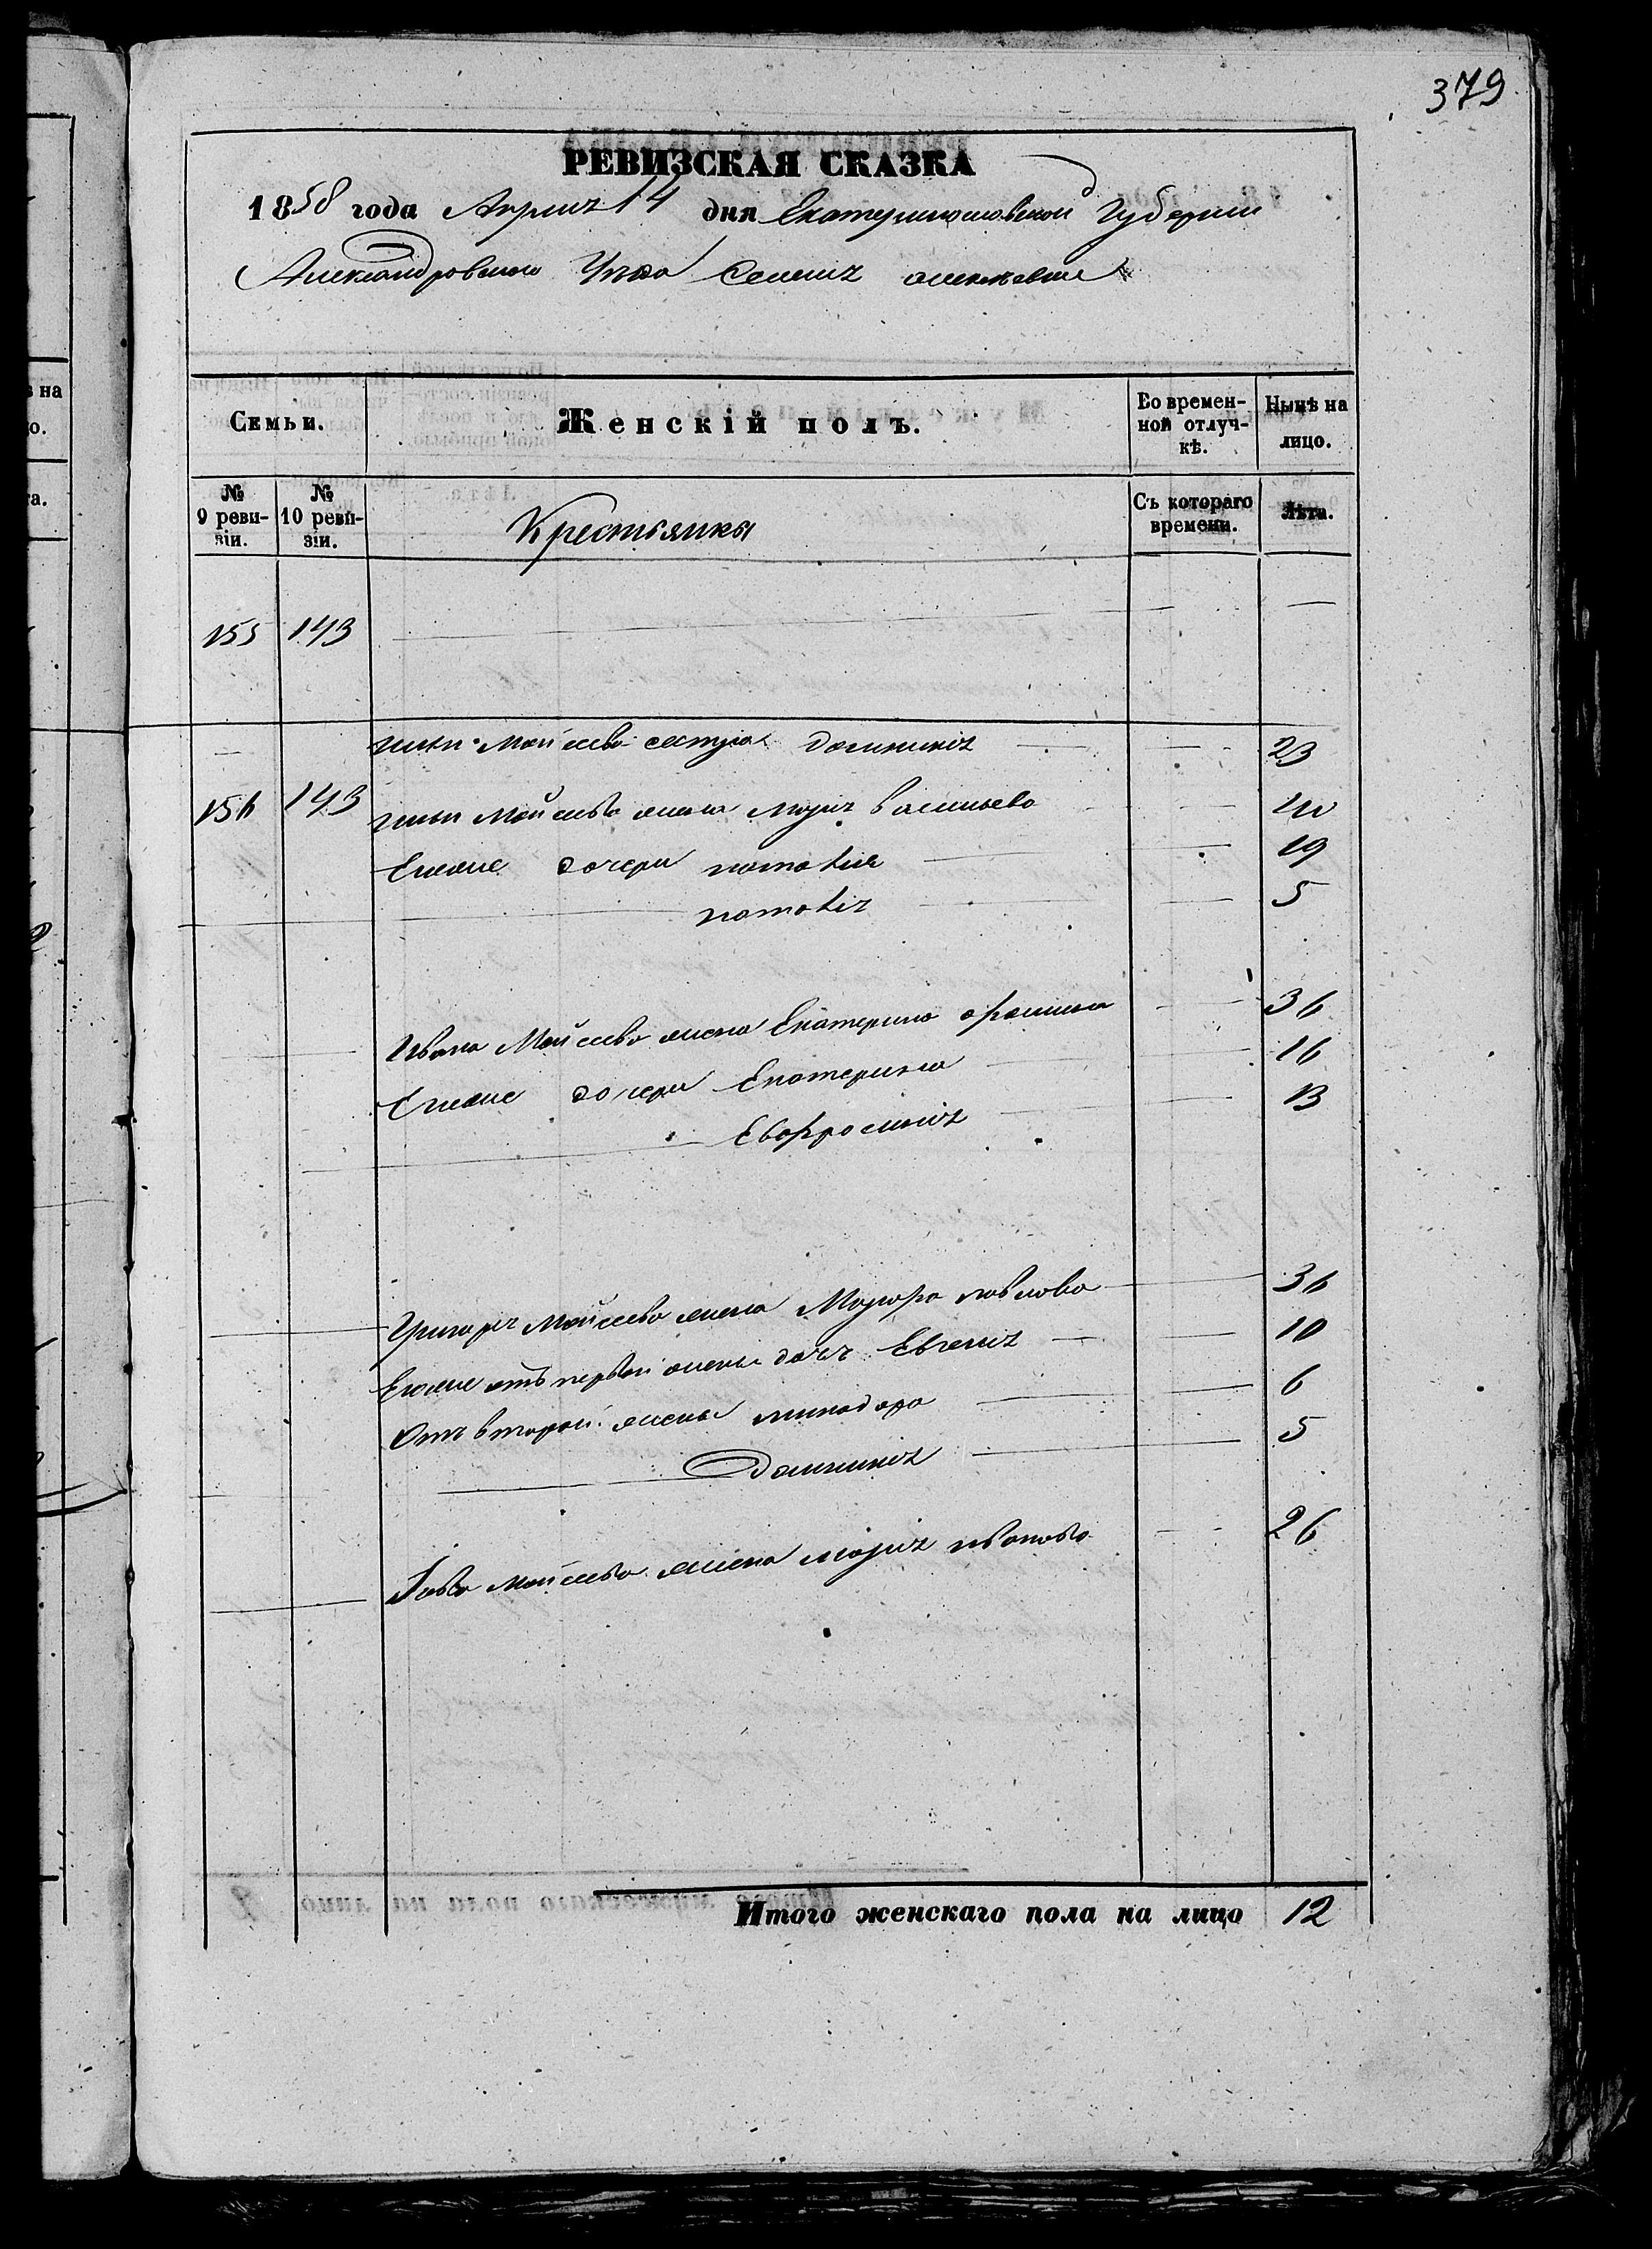 379
РЕВИЗСКАЯ СКАЗКА
1858 года Апреля 14 дня Екатеринославской Губернии
Александровского Уезда Селения
Семьи.
Женскій полъ.
Во времен-
ной отлуч-
кѣ.
Нынѣ на
лицо.
№
9 реви-
зіи.
№
10 реви-
зіи.
Крестьянка
Съ котораго
времени.
Лѣта.
155 143
Моисеева сестра Домникия 23
156 143 Моисеева жена Марья Васильева 40
Его же дочери Наталия 19
Наталия 5
Ивана Моисеева жена Екатерина 36
Его же дочери Екатерина 16
Евфросиния 13
Григорья Моисеева жена Павлова 36
Его же отъ первой жены дочь Евгения 10
Отъ второй жены Минодора 6
Домникия 5
Моисеева жена Мария Иванова 26
Итого женскаго пола на лицо 12